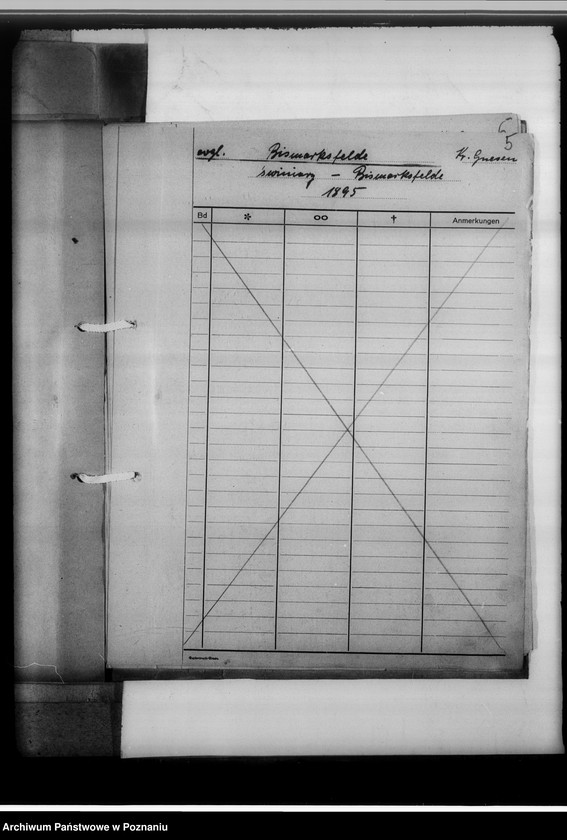 5
evgl. Bismarksfelde Kr. Gnesen
Swiniary – Bismarksfelde
1895
Bd * ∞ † Anmerkungen
Archiwum Państwowe w Poznaniu